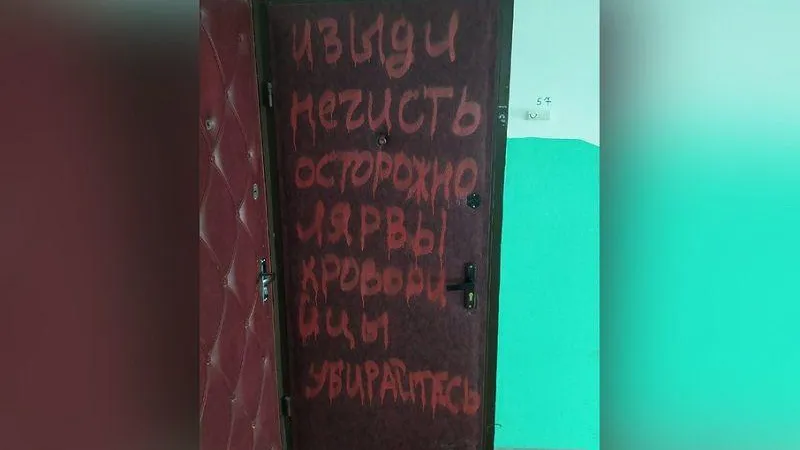 изыди
нечисть
57
осторожно
лярвы
кровопи
йцы
убирайтесь